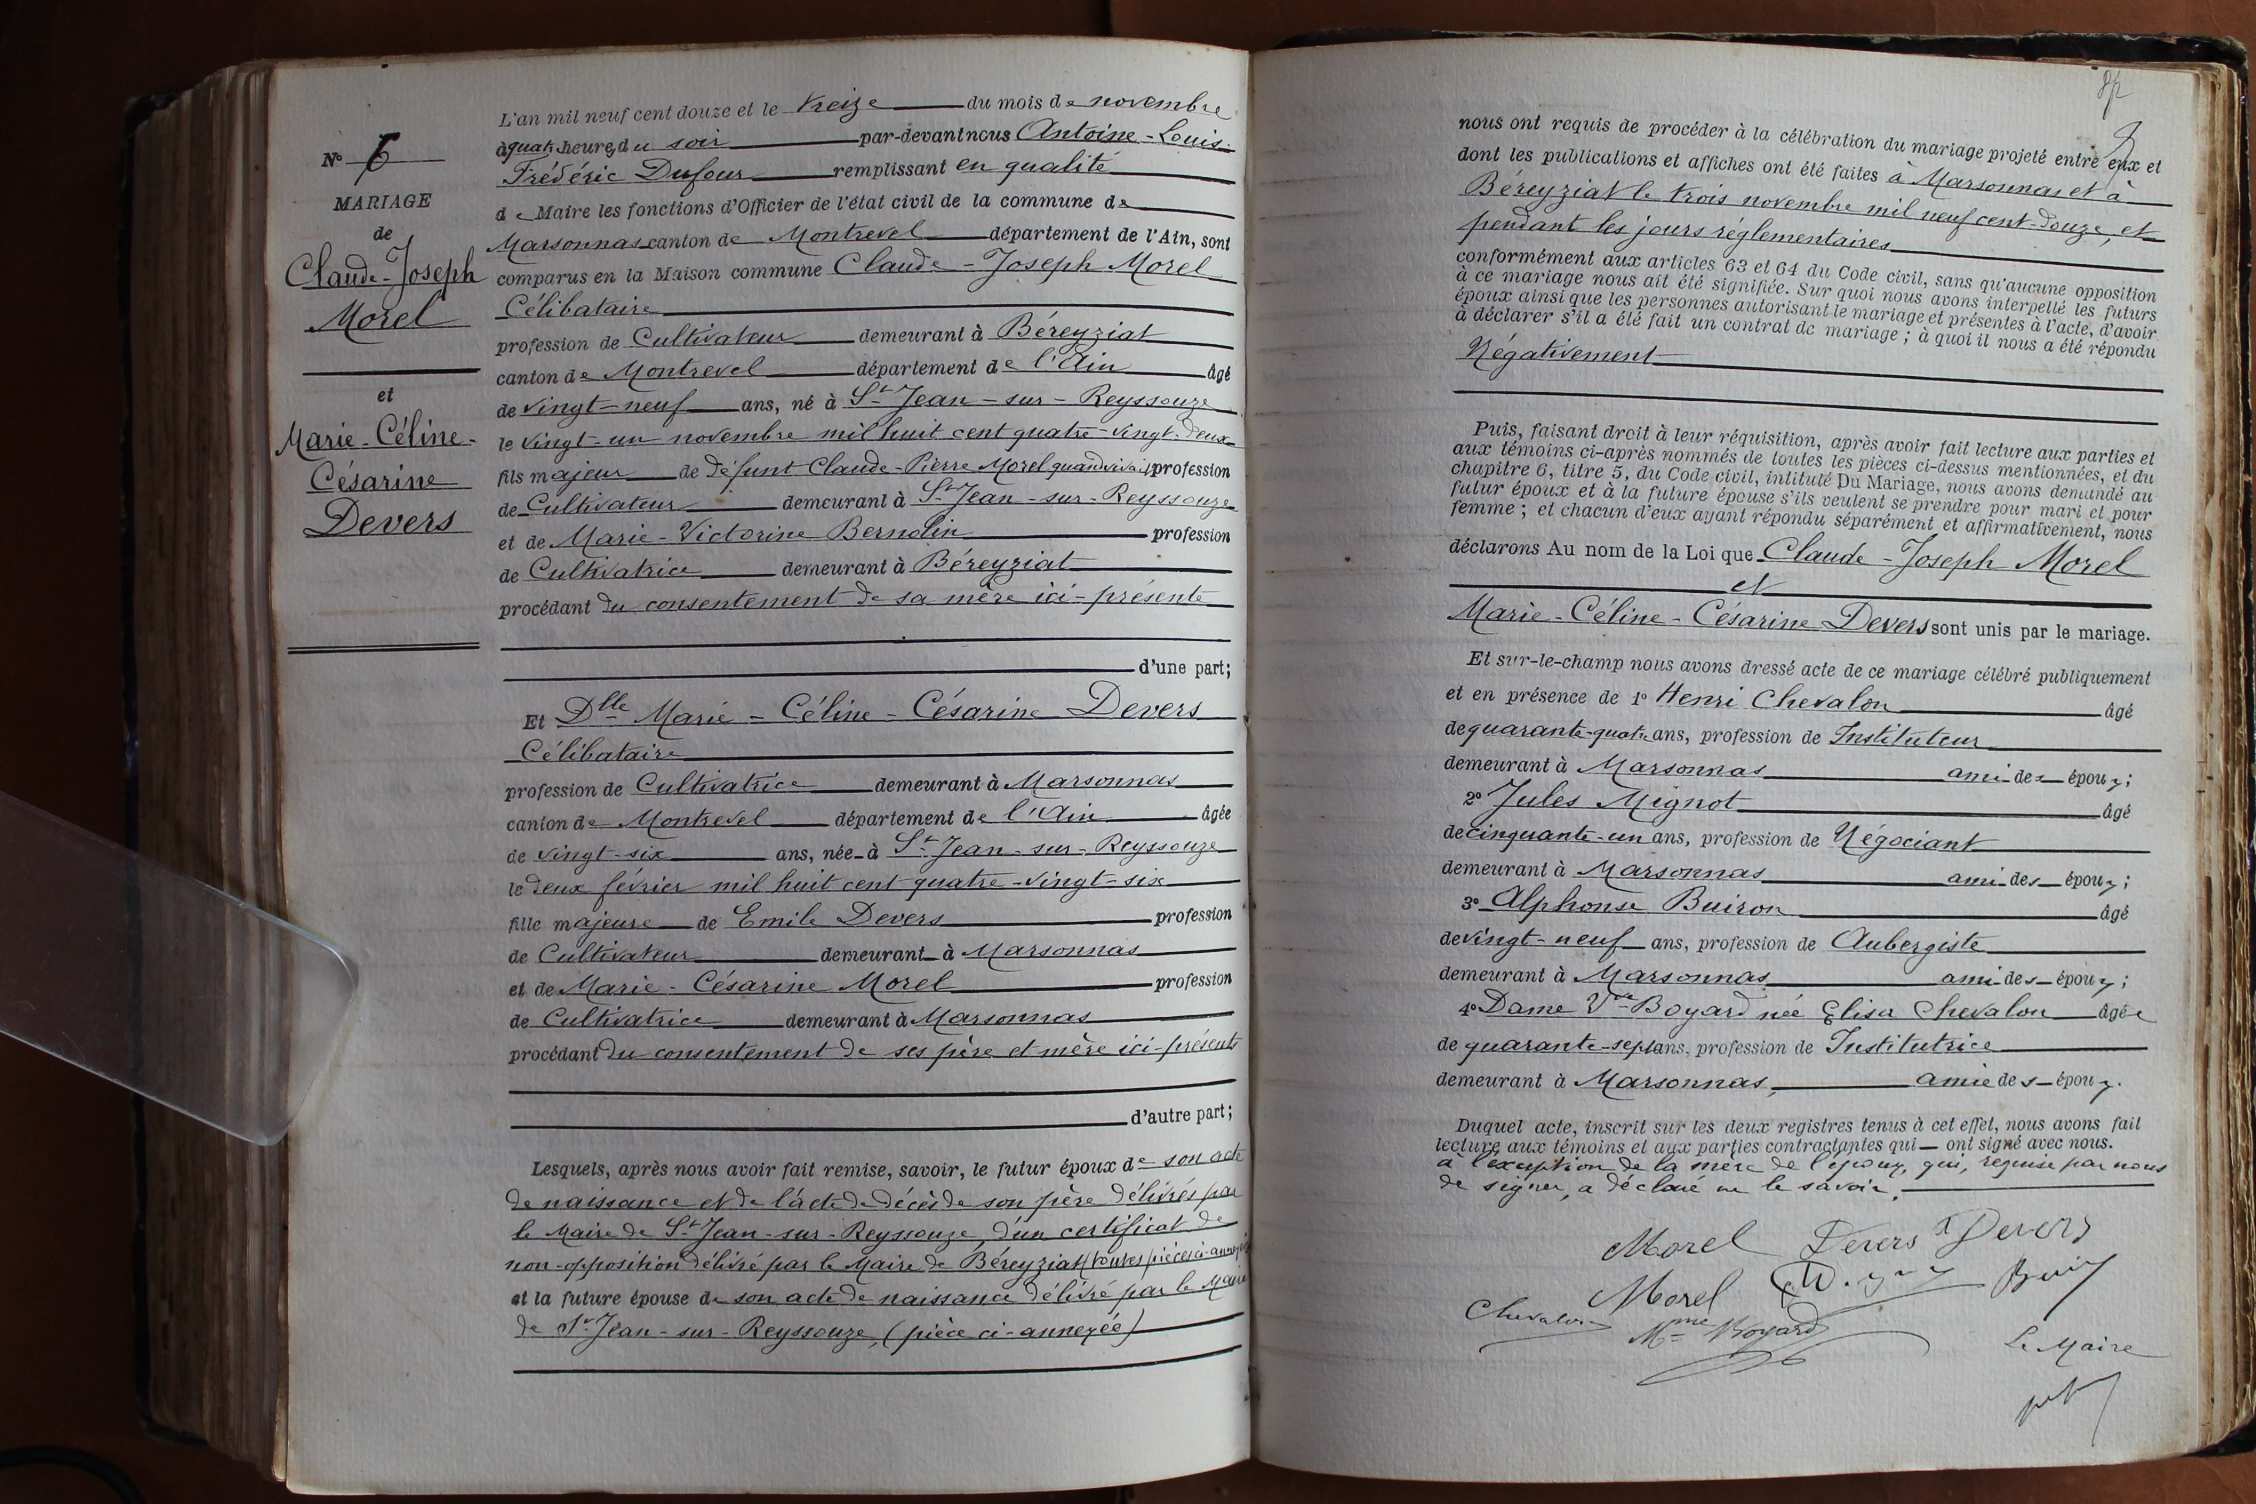 N° 6
MARIAGE
de
Claude-Joseph
Morel
et
Marie-Céline-
Césarine
Devers
L'an mil neuf cent douze et le treize du mois de novembre
à quatr heures du soir par-devant nous Antoine-Louis-
Frédéric Dufour remplissant en qualité
de Maire les fonctions d'Officier de l'état civil de la commune de
Marsonnas canton de Montrevel département de l'Ain, sont
comparus en la Maison commune Claude-Joseph Morel
Célibataire
profession de Cultivateur demeurant à Béreyziat
canton de Montrevel département de l'Ain âgé
de vingt-neuf ans, né à St Jean-sur-Reyssouze
le vingt-un novembre mil huit cent quatre-vingt-deux
fils majeur de défunt Claude-Pierre Morel quand vivait profession
de Cultivateur demeurant à St Jean-sur-Reyssouze
et de Marie-Victorine Bernolin profession
de Cultivatrice demeurant à Béreyziat
procédant du consentement de sa mère ici-présente
d'une part;
Et Dlle Marie-Céline-Césarine Devers
Célibataire
profession de Cultivatrice demeurant à Marsonnas
canton de Montrevel département de l'Ain âgée
de vingt-six ans, née à St Jean-sur-Reyssouze
le deux février mil huit cent quatre-vingt-six
fille majeure de Emile Devers profession
de Cultivateur demeurant à Marsonnas
et de Marie-Césarine Morel profession
de Cultivatrice demeurant à Marsonnas
procédant du consentement de ses père et mère ici-présents
d'autre part;
Lesquels, après nous avoir fait remise, savoir, le futur époux de son acte
de naissance et de l'acte de décès de son père délivrés par
le Maire de St Jean-sur-Reyssouze, d'un certificat de
non-opposition délivré par le Maire de Béreyziat (toutes pièces ci-annexées
et la future épouse de son acte de naissance délivré par le Maire
de St Jean-sur-Reyssouze, (pièce ci-annexée)
nous ont requis de procéder à la célébration du mariage projeté entre eux et
dont les publications et affiches ont été faites à Marsonnas et à
Béreyziat le trois novembre mil neuf cent-douze, et
pendant les jours réglementaires
conformément aux articles 63 et 64 du Code civil, sans qu'aucune opposition
à ce mariage nous ait été signifiée. Sur quoi nous avons interpellé les futurs
époux ainsi que les personnes autorisant le mariage et présentes à l'acte, d'avoir
à déclarer s'il a été fait un contrat de mariage; à quoi il nous a été répondu
Négativement
Puis, faisant droit à leur réquisition, après avoir fait lecture aux parties et
aux témoins ci-après nommés de toutes les pièces ci-dessus mentionnées, et du
chapitre 6, titre 5, du Code civil, intitulé Du Mariage, nous avons demandé au
futur époux et à la future épouse s'ils veulent se prendre pour mari et pour
femme; et chacun d'eux ayant répondu séparément et affirmativement, nous
déclarons Au nom de la Loi que Claude-Joseph Morel
et
Marie-Céline-Césarine Devers sont unis par le mariage.
Et sur-le-champ nous avons dressé acte de ce mariage célébré publiquement
et en présence de 1° Henri Chevalon âgé
de quarante-quatre ans, profession de Instituteur
demeurant à Marsonnas ami des époux;
2° Jules Mignot âgé
de cinquante-un ans, profession de Négociant
demeurant à Marsonnas ami des époux;
3° Alphonse Buiron âgé
de vingt-neuf ans, profession de Aubergiste
demeurant à Marsonnas ami des époux;
4° Dame Vve Boyard née Elisa Chevalon âgée
de quarante-sept ans, profession de Institutrice
demeurant à Marsonnas, amie des époux.
Duquel acte, inscrit sur les deux registres tenus à cet effet, nous avons fait
lecture aux témoins et aux parties contractantes qui ont signé avec nous.
à l'exception de la mère de l'époux, qui, requise par nous
de signer, a déclaré ne le savoir.
Morel Devers Devers
Morel
Chevalon Mme Boyard
Le Maire